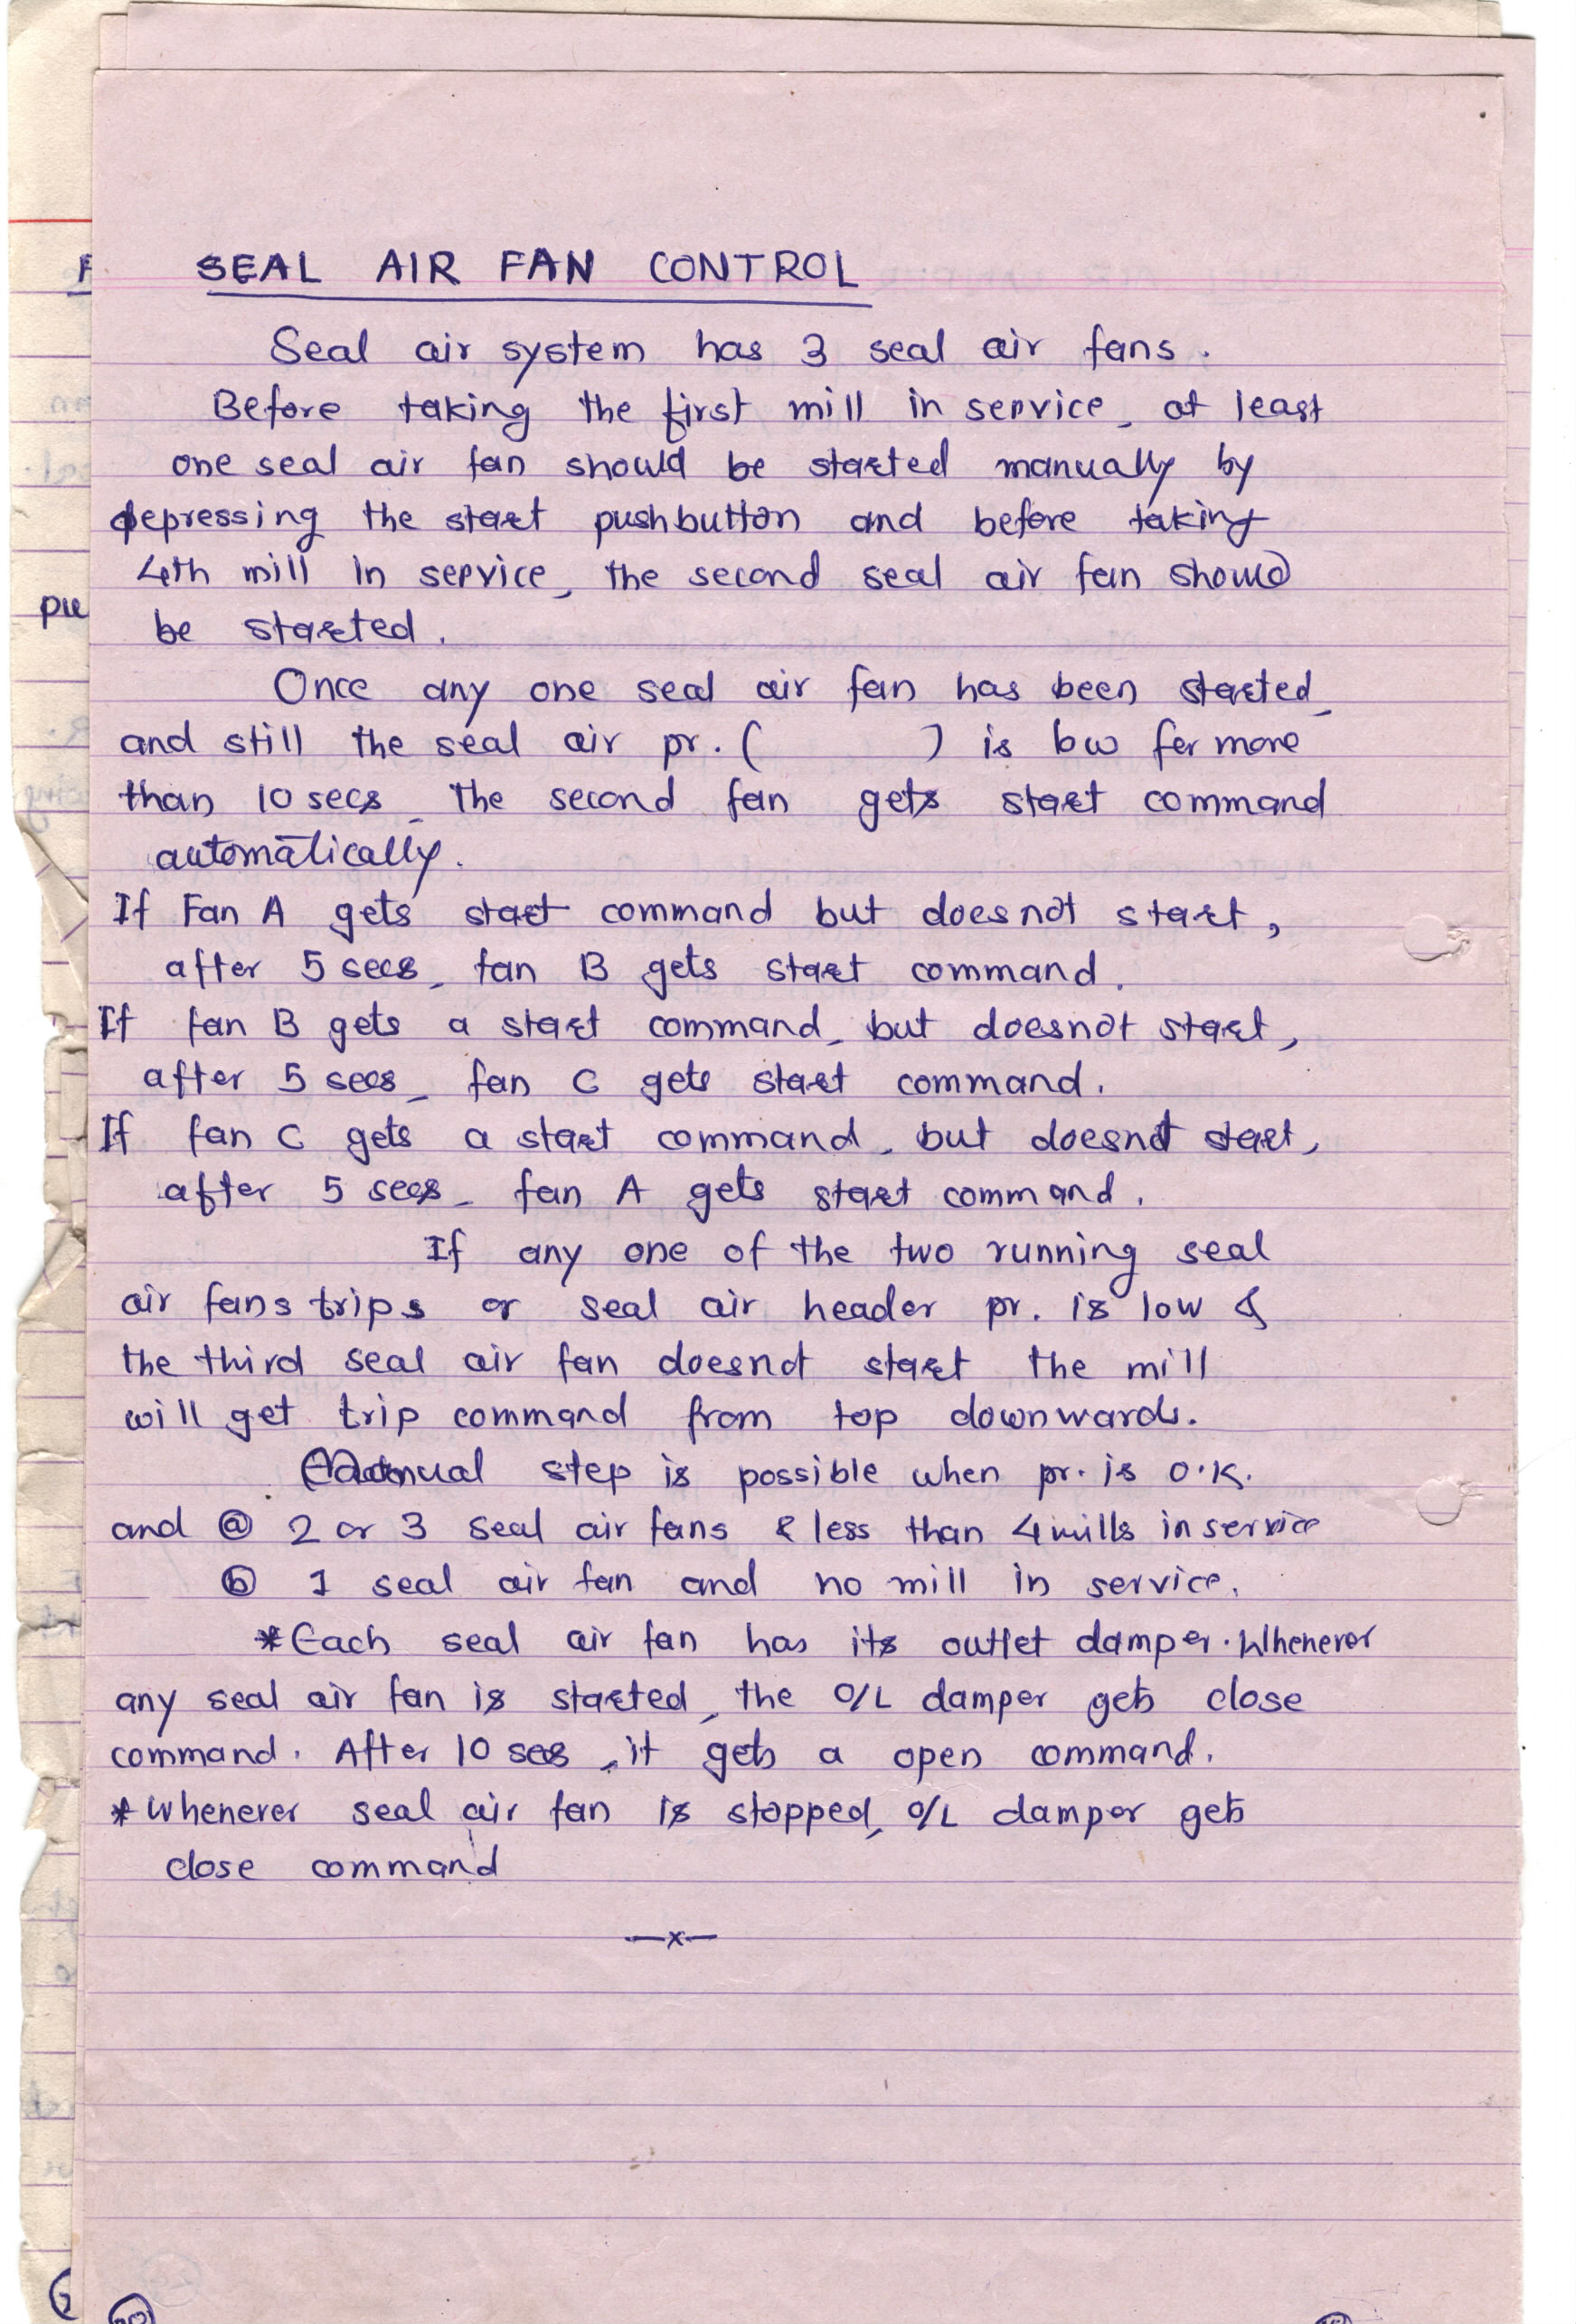 SEAL AIR FAN CONTROL
Seal air system has 3 seal air fans.
Before taking the first mill in service, at least
one seal air fan should be started manually by
depressing the start pushbutton and before taking
4th mill in service, the second seal air fan should
be started.
Once any one seal air fan has been started,
and still the seal air pr. ( ) is low for more
than 10 secs, the second fan gets start command
automatically.
If Fan A gets start command but does not start,
after 5 secs, fan B gets start command.
If fan B gets a start command, but doesnot start,
after 5 secs, fan C gets start command.
If fan C gets a start command, but doesnot start,
after 5 secs, fan A gets start command.
If any one of the two running seal
air fans trips or seal air header pr. is low &
the third seal air fan doesnot start the mill
will get trip command from top downwards.
Manual step is possible when pr. is O.K.
and (a) 2 or 3 seal air fans & less than 4 mills in service
(b) 1 seal air fan and no mill in service.
*Each seal air fan has its outlet damper. Whenever
any seal air fan is started, the O/L damper gets close
command. After 10 secs, it gets a open command.
*Whenever seal air fan is stopped, O/L damper gets
close command
—x—